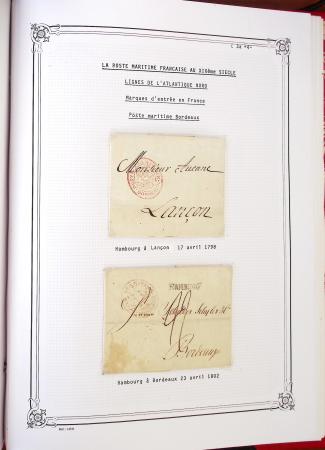 LA POSTE MARITIME FRANCAISE AU XIXème SIECLE
LIGNES DE L'ATLANTIQUE NORD
Marques d'entrée en France
Poste maritime Bordeaux
Monsieur
Lançon
Hambourg à Lançon 17 avril 1798
HAMBOURG
Bordeaux
Hambourg à Bordeaux 23 avril 1802